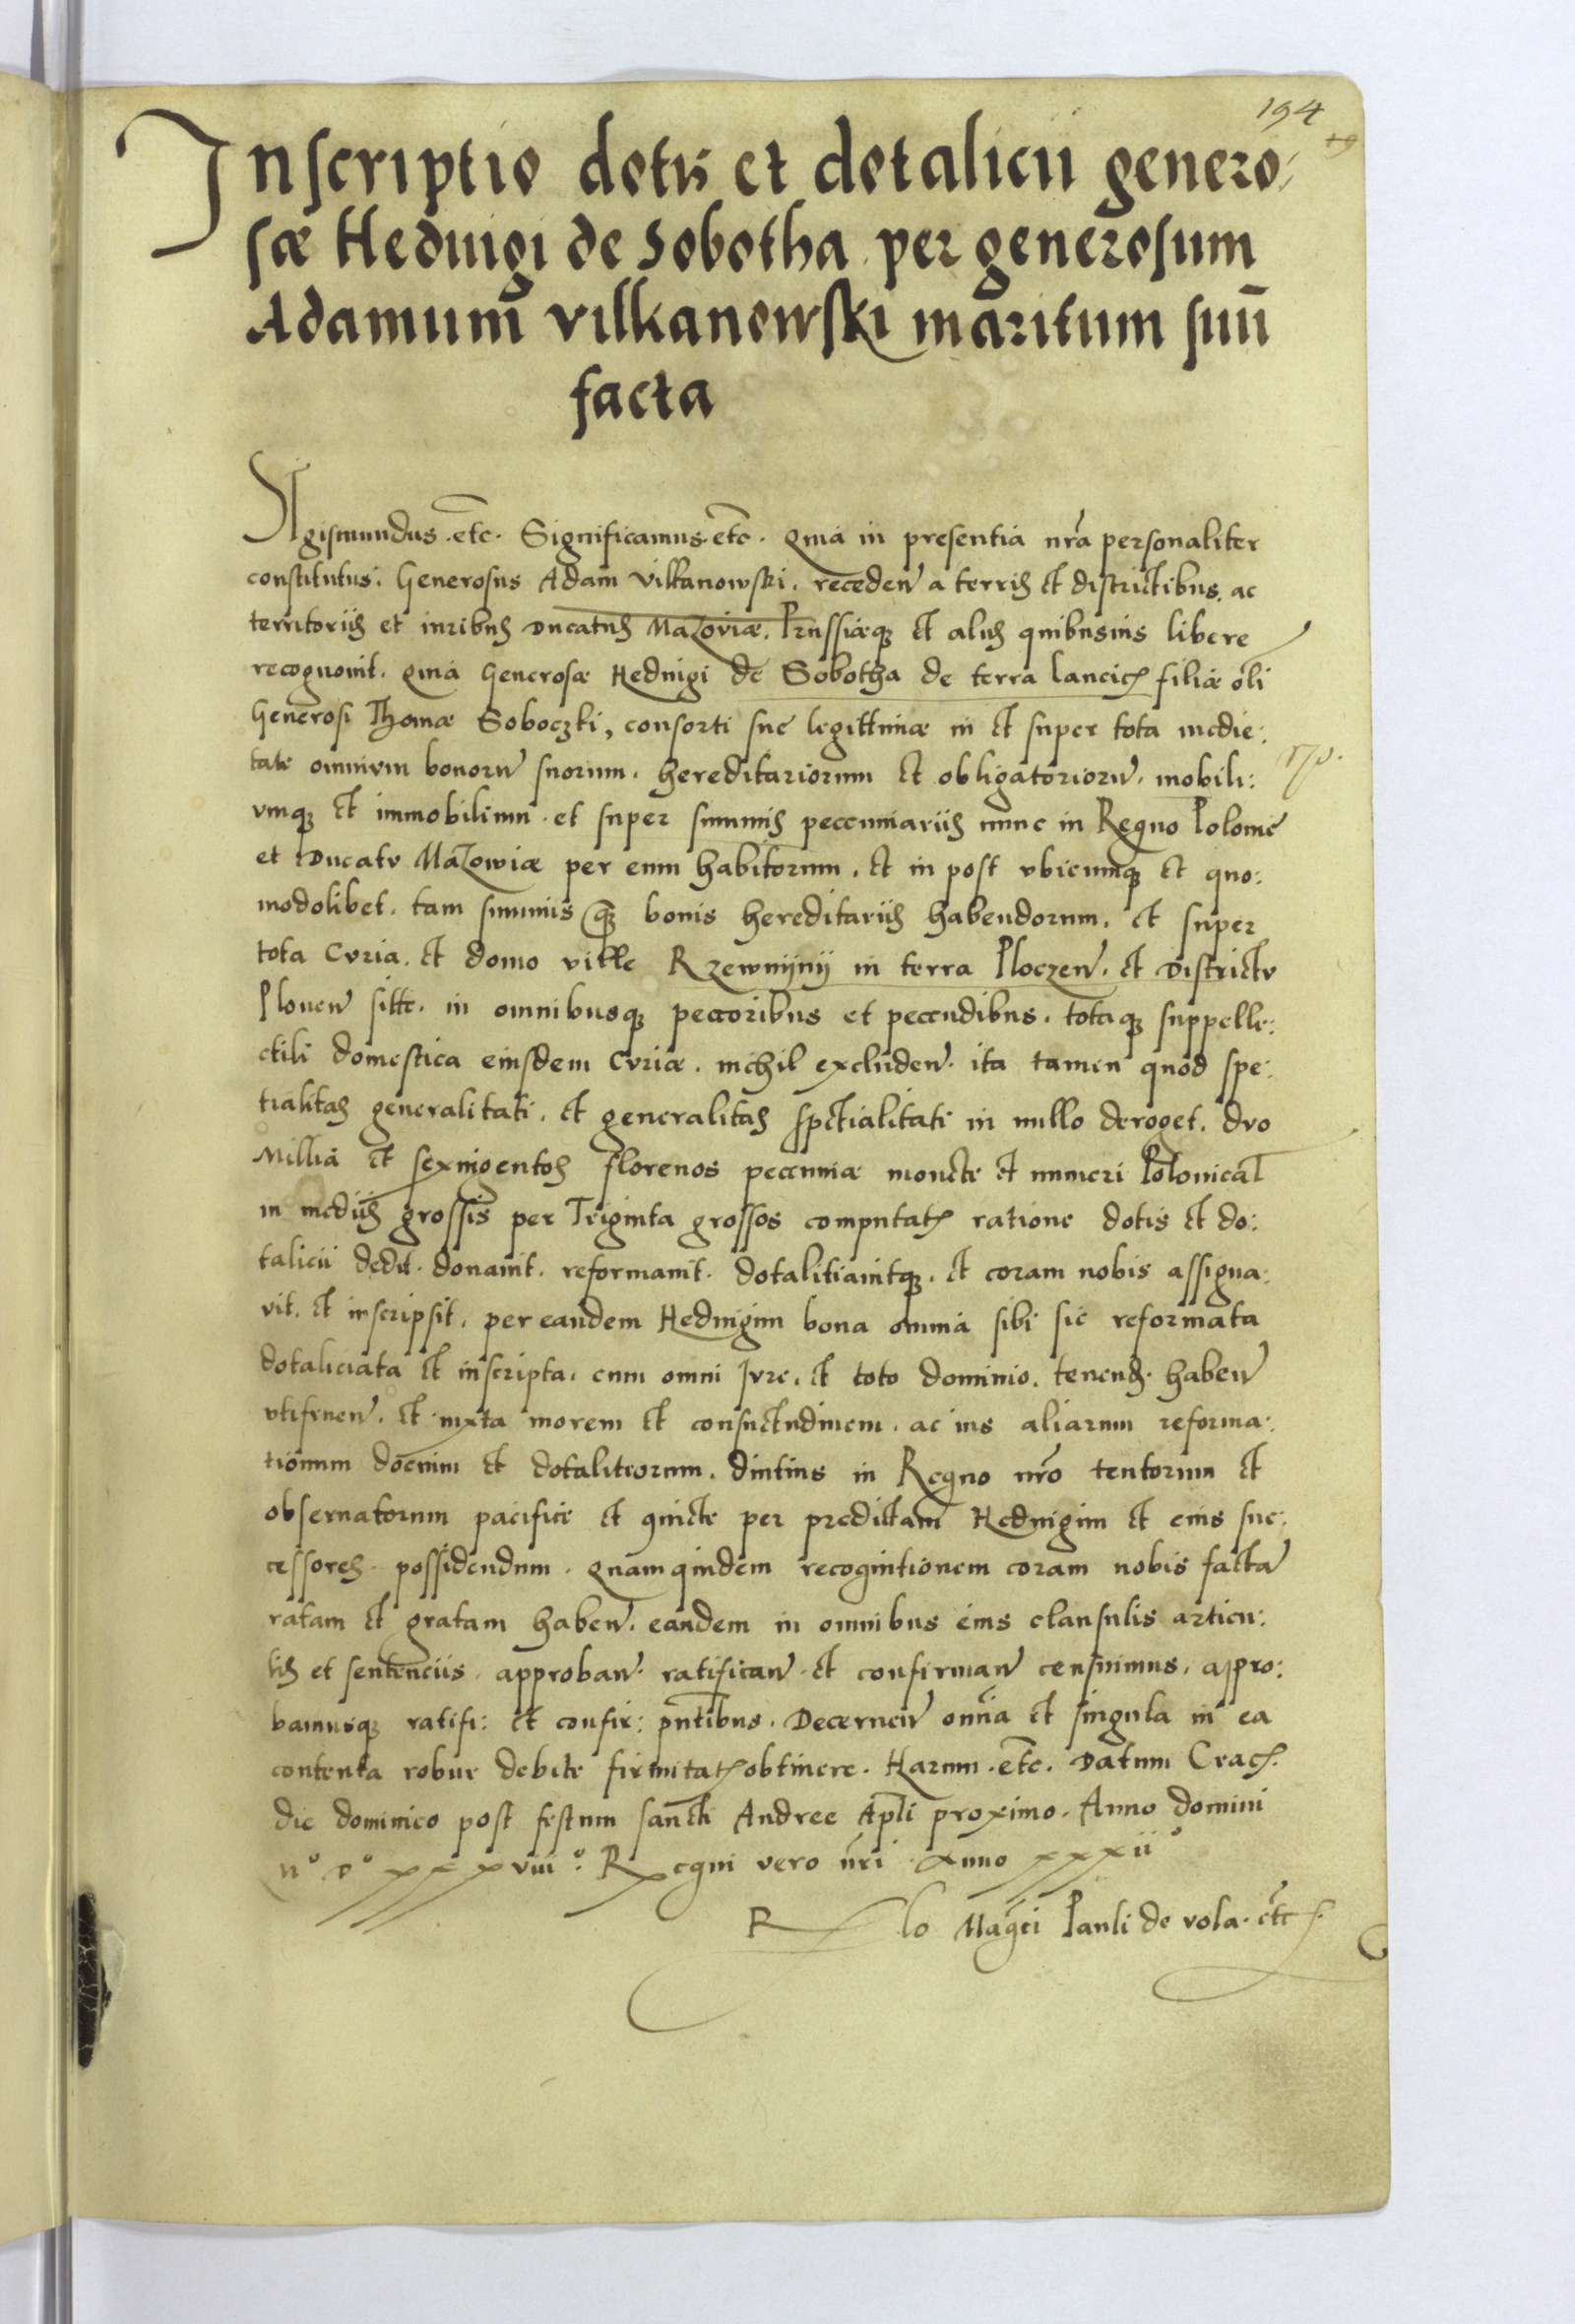 194
Inscriptio dotis et dotalicii genero:
sæ Heduigi de Sobotha per generosum
Adamum Vilkanowski maritum suū
facta
Sigismundus. etc. Significamus. etc. Quia in presentia nrā personaliter
constitutus. Generosus Adam Vilkanowski. receden̄ a terris et districtibus. ac
territoriis et iuribus Ducatus Mazoviæ. Prussiæq; et aliis quibusuis libere
recognouit. Quia Generosæ Heduigi de Sobotha de terra Lancicz filiæ oli
Generosi Thomæ Soboczki, consorti sue legittimæ in et super tota medie:
tate omnium bonorū suorum. hereditariorum et obligatoriorū. mobili:
umq; et immobilium. et super summis peccuniariis nunc in Regno Polonie
et Ducatu Mazowiæ per eum habitorum. et in post vbicumq; et quo:
modolibet. tam summis q; bonis hereditariis habendorum. et super
tota Curia. et domo ville Rzewnynij in terra Ploczen̄. et Districtu
Plonen̄ sitte. in omnibusq; peccoribus et peccudibus. totaq; suppelle:
ctili domestica eiusdem Curiæ. nichil excluden̄. ita tamen quod spe:
tialitas generalitati. et generalitas spetialitati in nullo deroget. duo
Millia et sexingentos florenos peccuniæ monete et numeri Polonical
in mediis grossis per Triginta grossos computat. ratione dotis et do:
talicii dedit. donauit. reformauit. dotalitiauitq;. et coram nobis assigna:
vit. et inscripsit. per eandem Heduigim bona omnia sibi sic reformata
dotaliciata et inscripta. cum omni Jure. et toto dominio. tenend. haben̄
vtifruen̄. et iuxta morem et consuetudinem. ac ius aliarum reforma:
tionum docium et dotalitiorum. diutius in Regno nrō tentorum et
obseruatorum pacifice et quiete per predictam Heduigim et eius suc:
cessores possidendum. Quamquidem recognitionem coram nobis factā
ratam et gratam haben̄. eandem in omnibus eius clausulis articu:
lis et sentenciis. approban̄. ratifican̄. et confirman̄ censuimus. appro:
bamusq; ratifi: et confir: pn̄tibus. Decernen̄ omnia et singula in ea
contenta robur debite firmitat. obtinere. Harum. etc. Datum Crac.
die dominico post festum sancti Andree Apli proximo. Anno domini
M° D° xxxviii° Regni vero nrī Anno xxxii°
Rlo Magci Pauli de vola. etc